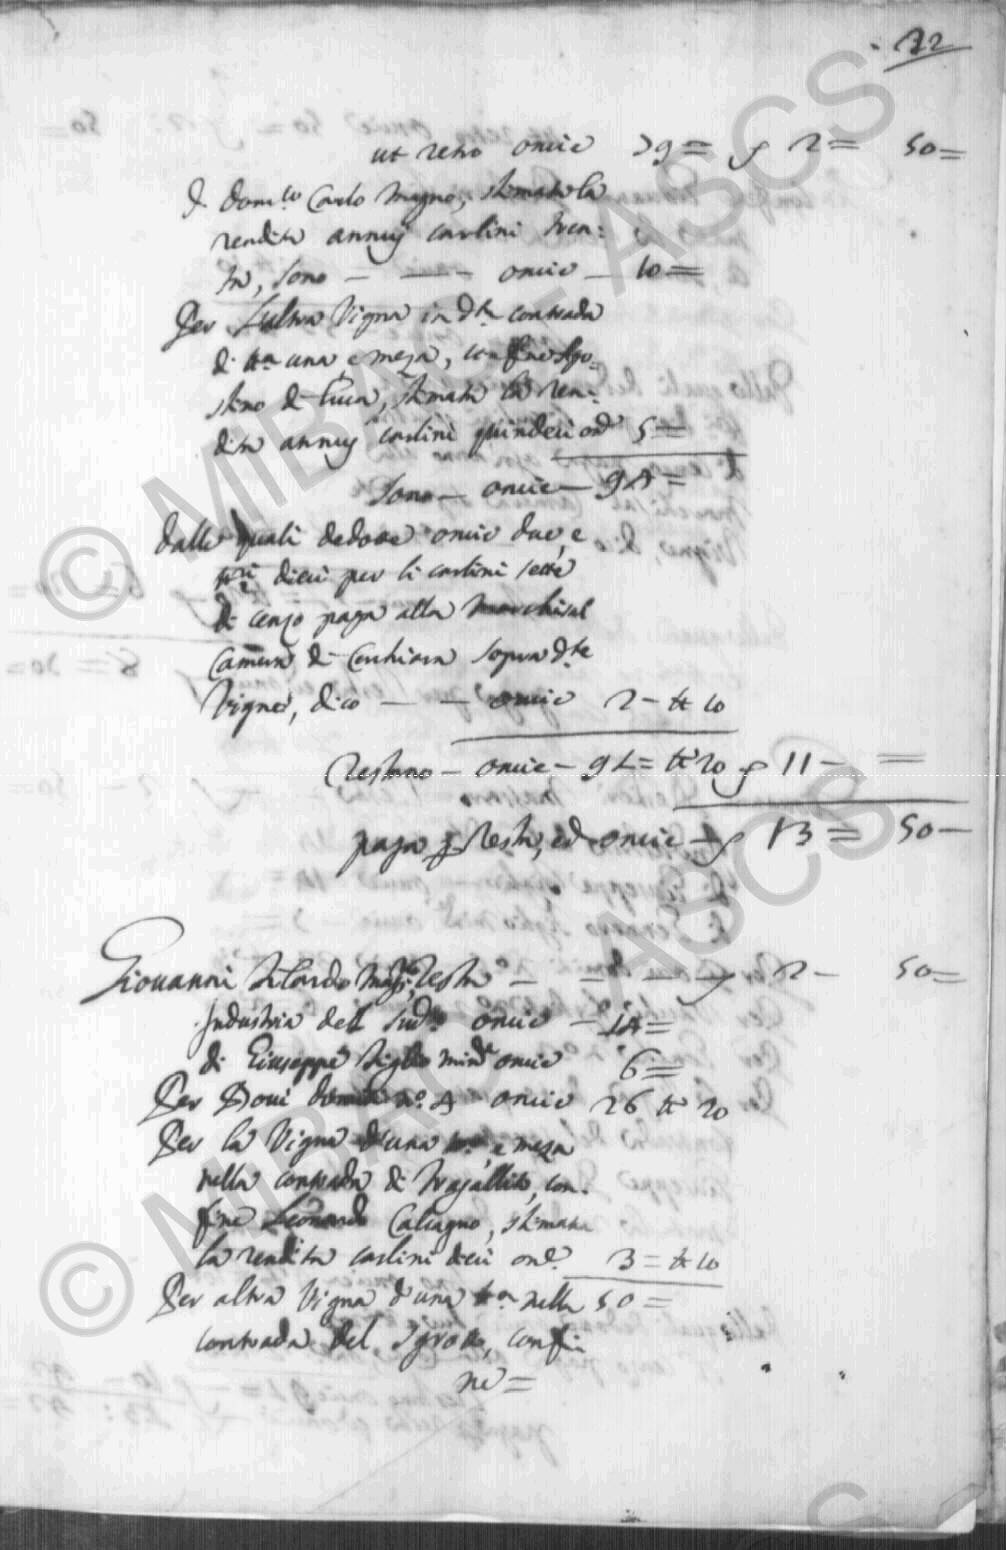 32
ut retro oncie 79 = p 2 = 50 =
D. Dom.co Carlo Magno, stimata la
rendita annuj carlini tren:
ta, sono — — — oncie — 10 =
Per l'altra Vigna in d.ta contrada
di tt.a una, e meza, confine Ago=
stino di Luca, stimata la ren=
dita annuj carlini quindeci on.e 5 =
Sono — oncie — 94 =
Dalle quali dedotte oncie due, e
tt.ri dieci per li carlini sette
di cenzo paga alla Marchisal
Camera di Cerchiara sopra d.te
Vigne, dico — — oncie 2 — tt 10
Restano — oncie — 91 = tt 20 p 11 — =
paga p testa, ed oncie — p 13 = 50 —
Giovanni Silardo testa — — — p 2 — 50 =
Industria del sud.o oncie — 14 =
di Giuseppe figlio min.e oncie 6 =
Per Bovi n.o 4 oncie 26 tt 20
Per la Vigna d'una tt.a e meza
nella contrada di con:
fine Leonardo Calvagno, stimata
la rendita carlini dieci on.e 3 = tt 10
50 =
Per altra Vigna d'una tt.a nella
contrada del confi
ne =
© MIBAC - ASCS
© MIBAC - ASCS